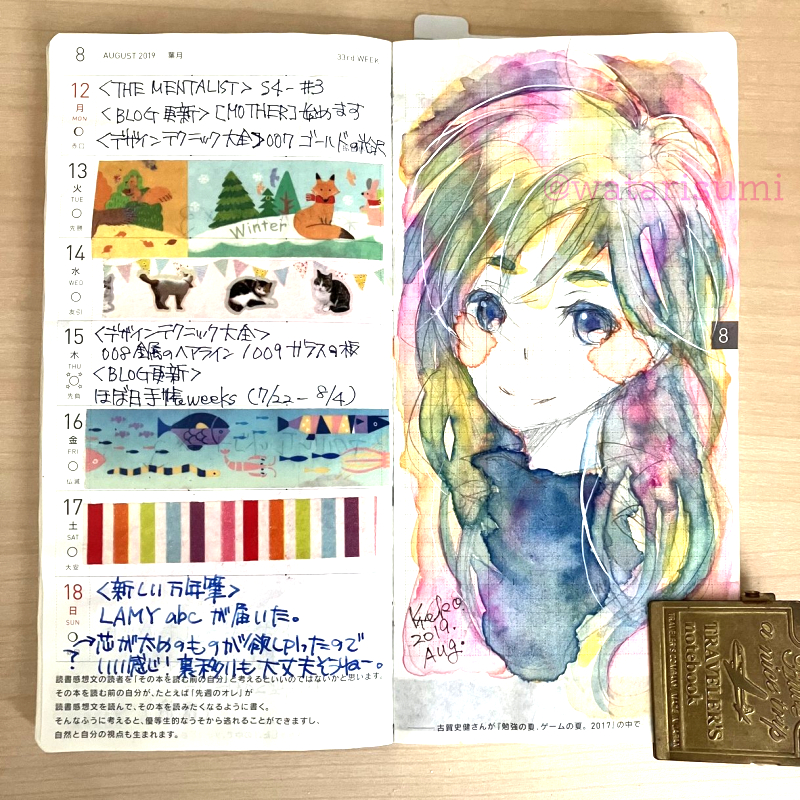 8 AUGUST 2019 葉月 33rd WEEK
12 月 MON 赤口
<THE MENTALIST> S4-#3
<BLOG更新> [MOTHER]始めます
<デザインテクニック大全>007 ゴールドの光沢
13 火 TUE 先勝
Winter
14 水 WED 友引
15 木 THU 先負
<デザインテクニック大全>
008金属のヘアライン / 009ガラスの板
<BLOG更新>
ほぼ日手帳weeks (7/22-8/4)
16 金 FRI 仏滅
17 土 SAT 大安
18 日 SUN
<新しい万年筆>
LAMY abc が届いた。
→芯が太めのものが欲しかったので
? いい感じ 裏移りも大丈夫そうねー。
読書感想文の読者を「その本を読む前の自分」と考えるといいのではないかと思います。
その本を読む前の自分が、たとえば「先週のオレ」が
読書感想文を読んで、その本を読みたくなるように書く。
そんなふうに考えると、優等生的なうそから逃れることができますし、
自然と自分の視点も生まれます。
@watarisumi
8
2019.
Aug.
——古賀史健さんが『勉強の夏、ゲームの夏。2017』の中で
TRAVELER'S
notebook